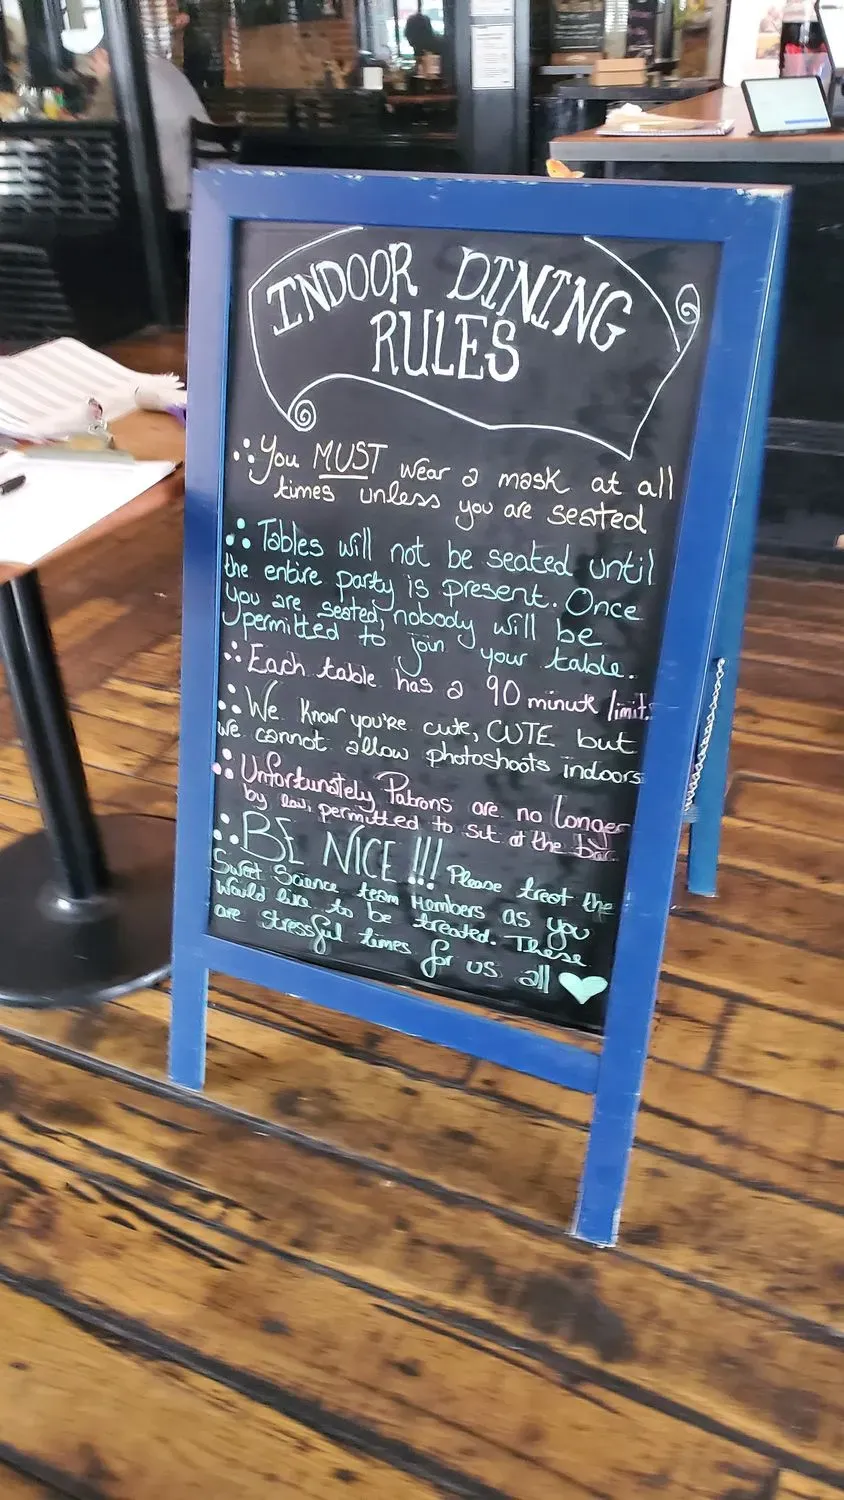 INDOOR DINING
RULES
You MUST wear a mask at all
times unless you are seated
Tables will not be seated until
the entire party is present. Once
you are seated, nobody will be
permitted to join your table.
Each table has a 90 minute limit.
We know you're cute, CUTE but
we cannot allow photoshoots indoors
Unfortunately Patrons are no longer
by law, permitted to sit at the bar.
BE NICE!!! Please treat the
Sweet Science team Members as you
would like to be treated. These
are stressful times for us all